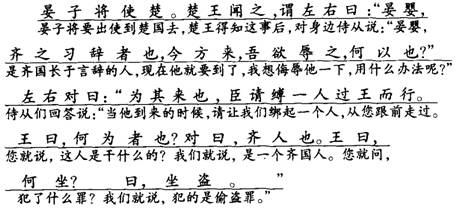 晏子将使楚。楚王闻之,谓左右曰:“晏婴,
晏子将要出使到楚国去,楚王得知这事后,对身边侍从说:“晏婴,
齐之习辞者也,今方来,吾欲辱之,何以也?”
是齐国长于言辞的人,现在他就要到了,我想侮辱他一下,用什么办法呢?”
左右对曰:“为其来也,臣请缚一人过王而行。
侍从们回答说:“当他到来的时候,请让我们绑起一个人,从您跟前走过。
王曰,何为者也?对曰,齐人也。王曰,
您就说,这人是干什么的?我们就说,是一个齐国人。您就问,
何坐? 曰,坐盗。”
犯了什么罪?我们就说,犯的是偷盗罪。”